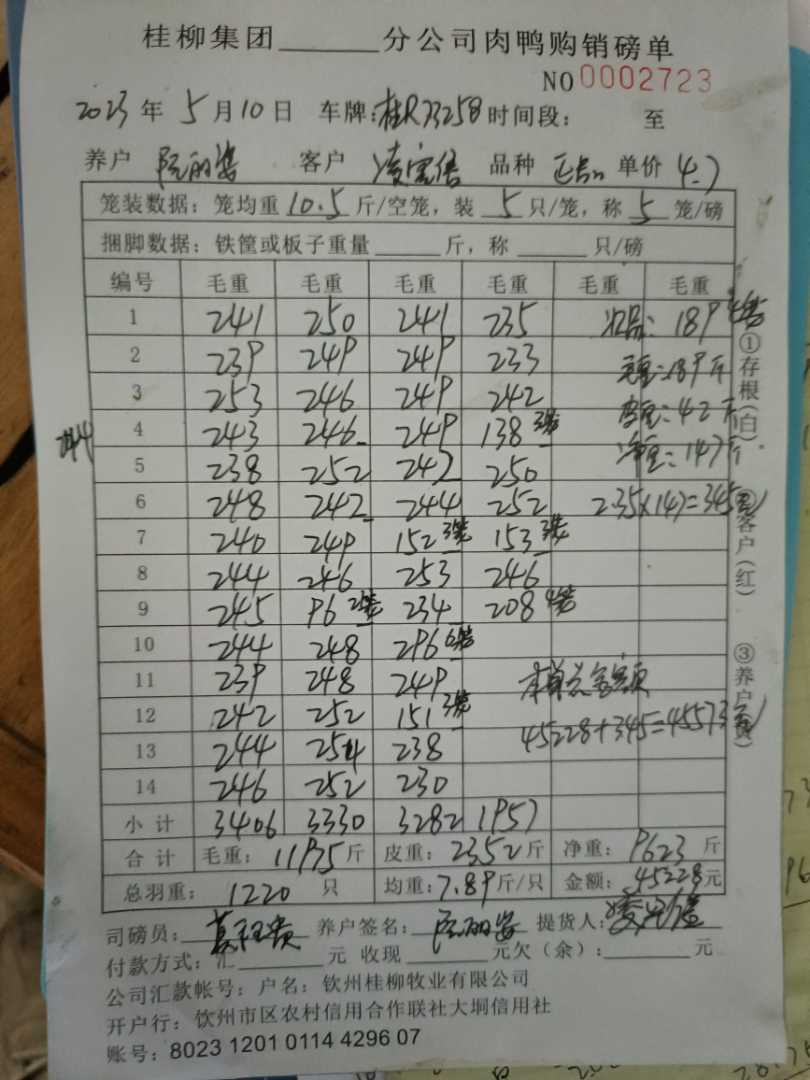 桂柳集团______分公司肉鸭购销磅单
NO 0002723
2023 年 5 月 10 日 车牌:桂R73258 时间段: 至
养户 阮丽 客户 凌 品种 正品 单价 4.7
笼装数据: 笼均重 10.5 斤/空笼, 装 5 只/笼, 称 5 笼/磅
捆脚数据: 铁筐或板子重量 ______ 斤, 称 ______ 只/磅
编号 毛重 毛重 毛重 毛重 毛重 毛重
1 241 250 241 235 次品: 189 4笼
2 239 249 249 233 毛重:189斤
3 253 246 249 242 皮重:42斤
244 4 243 246 249 138 3笼 净重:147斤
5 238 252 242 250
6 248 242 244 252 2.35×147=345元
7 240 249 152 3笼 153 3笼
8 244 246 253 246
9 245 96 2笼 234 208 4笼
10 244 248 296 6笼
11 239 248 249 本单总金额
12 242 252 151 3笼 45228+345=45573元
13 244 254 238
14 246 252 230
小计 3406 3330 3282 1957
合计 毛重: 11975 斤 皮重: 2352 斤 净重: 9623 斤
总羽重: 1220 只 均重: 7.89 斤/只 金额: 45228 元
司磅员: 养户签名: 阮丽 提货人: 凌
付款方式: 汇 ______ 元 收现 ______ 元欠(余): ______ 元
公司汇款帐号: 户名: 钦州桂柳牧业有限公司
开户行: 钦州市区农村信用合作联社大垌信用社
账号: 8023 1201 0114 4296 07
①存根(白) ②客户(红) ③养户(黄)